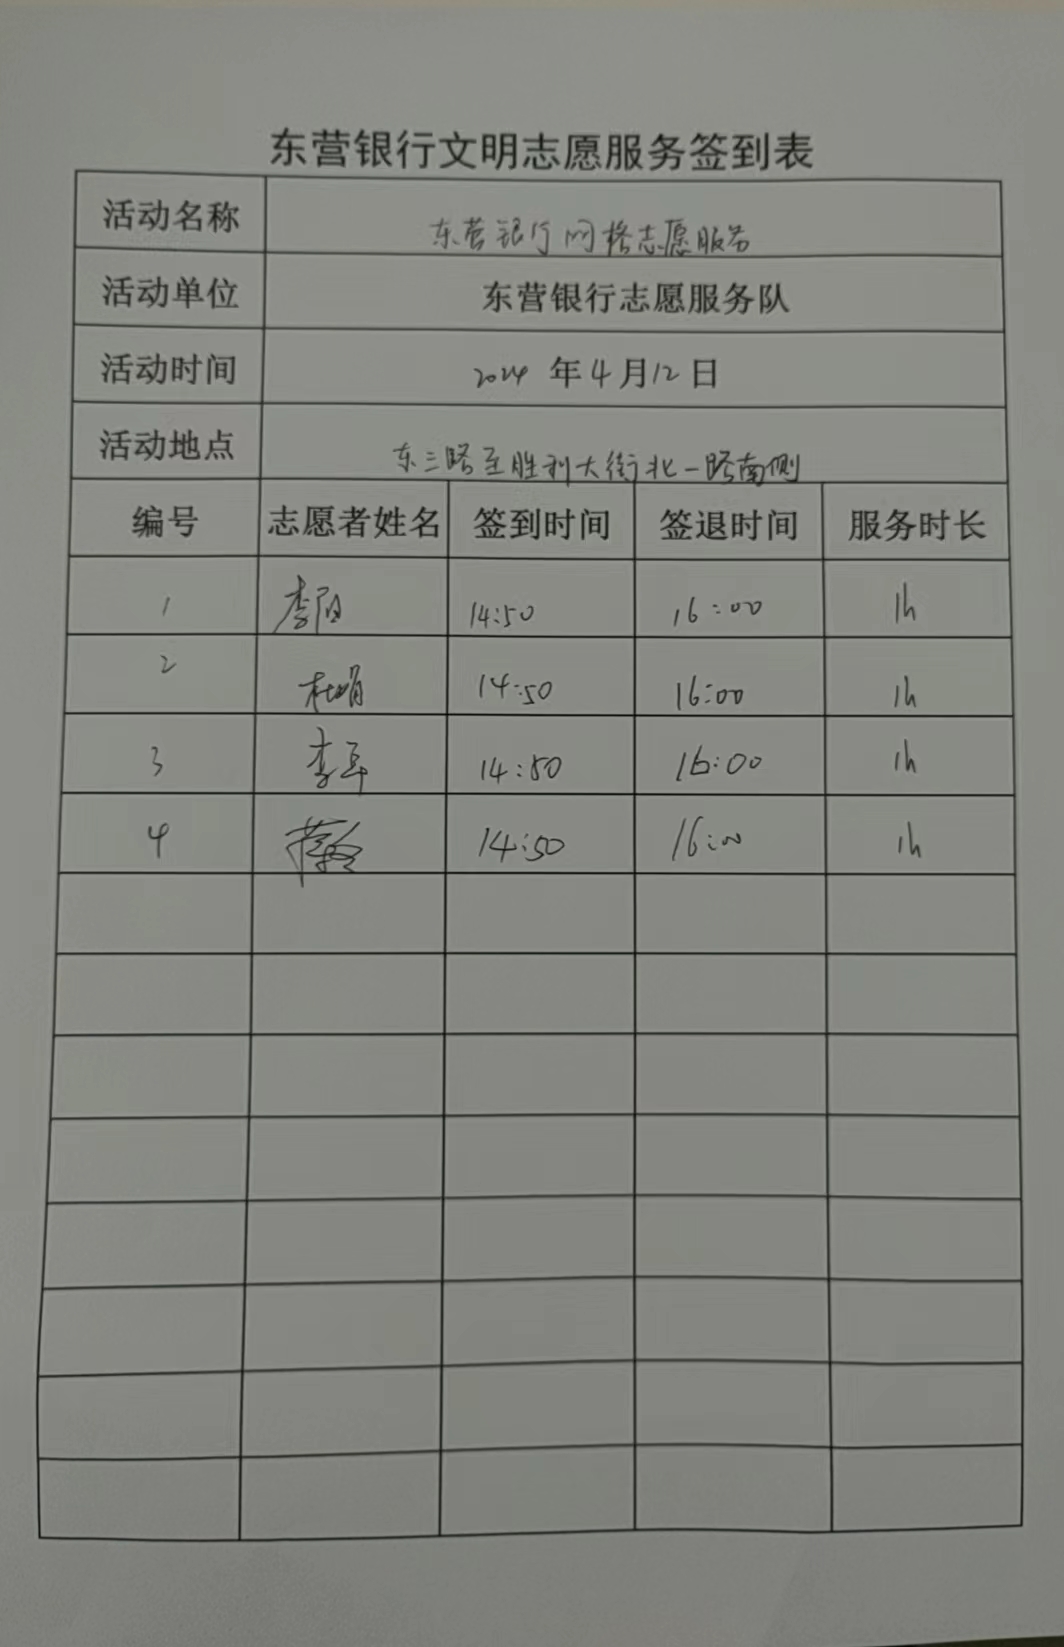 东营银行文明志愿服务签到表
活动名称 东营银行网格志愿服务
活动单位 东营银行志愿服务队
活动时间 2024 年 4 月 12 日
活动地点 东三路至胜利大街北一路南侧
编号 志愿者姓名 签到时间 签退时间 服务时长
1 李阳 14:50 16:00 1h
2 杜娟 14:50 16:00 1h
3 李军 14:50 16:00 1h
4 14:50 16:00 1h